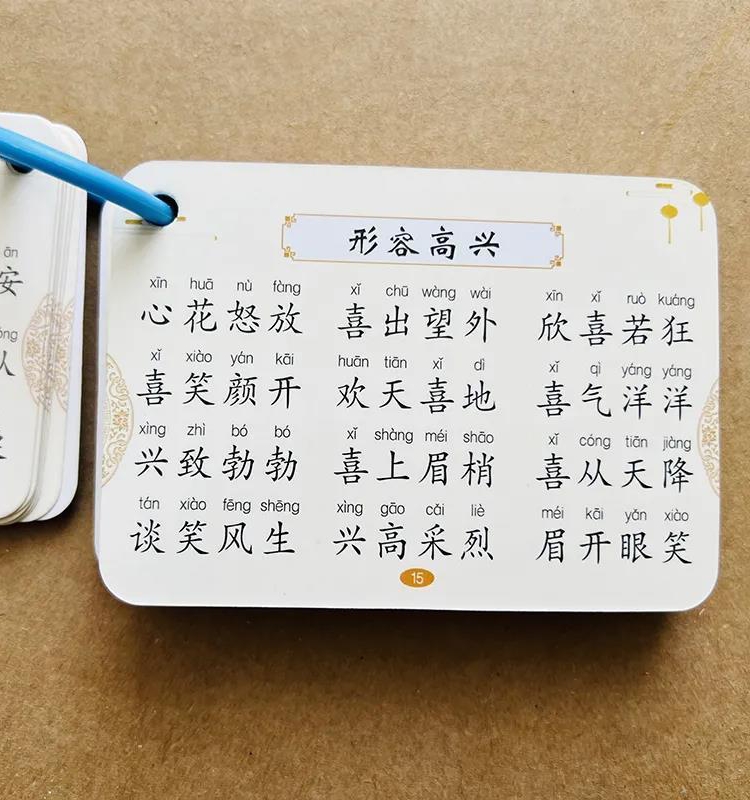 形容高兴
xīn huā nù fàng xǐ chū wàng wài xīn xǐ ruò kuáng
心花怒放 喜出望外 欣喜若狂
xǐ xiào yán kāi huān tiān xǐ dì xǐ qì yáng yáng
喜笑颜开 欢天喜地 喜气洋洋
xìng zhì bó bó xǐ shàng méi shāo xǐ cóng tiān jiàng
兴致勃勃 喜上眉梢 喜从天降
tán xiào fēng shēng xìng gāo cǎi liè méi kāi yǎn xiào
谈笑风生 兴高采烈 眉开眼笑
15
ān
安